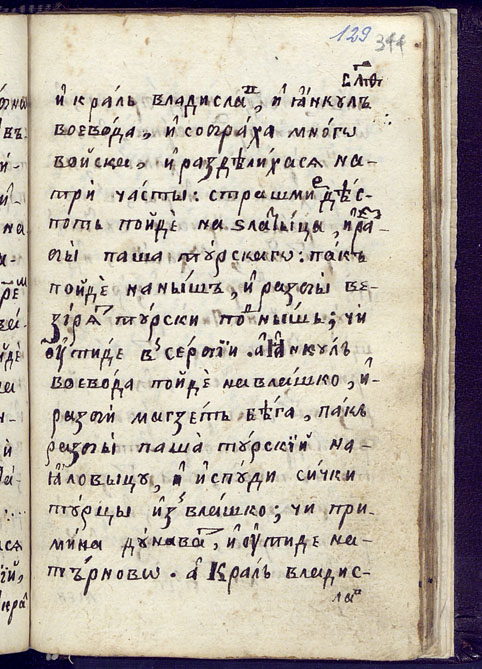 129
344
и҆ краль владисла́въ, и҆ ꙗ҆нкулъ
воево́да, и҆ собра́ха мно́гѡ
во́йска, и҆ раздѣли́хасѧ на-
трѝ ча́сты: страшми́ръ дѣ́с-
потъ пойдѐ на ѕла́тыца, и҆ ра-
збы̀ паша̀ ту́рскагѡ: па́къ
пойдѐ на ны́шъ, и҆ разбы̀ ве-
зі́рѧ ту́рски под ны́шъ; чи
ѿи́де въ се́рбїи. а҆ ꙗ҆́нкулъ
воево́да пойдѐ на вла́шко, и҆-
разбѝ магзе́тъ бе́га, па́къ
разбы̀ паша̀ ту́рскїй на-
ꙗ҆ловы́цу, и҆ и҆спу́ди си́чки
ту́рцы и҆з вла́шко; чи при-
ми́на ду́нава, и҆ ѿи́де на-
тъ́рновѡ. а҆ Кра́ль владис-
ла́въ